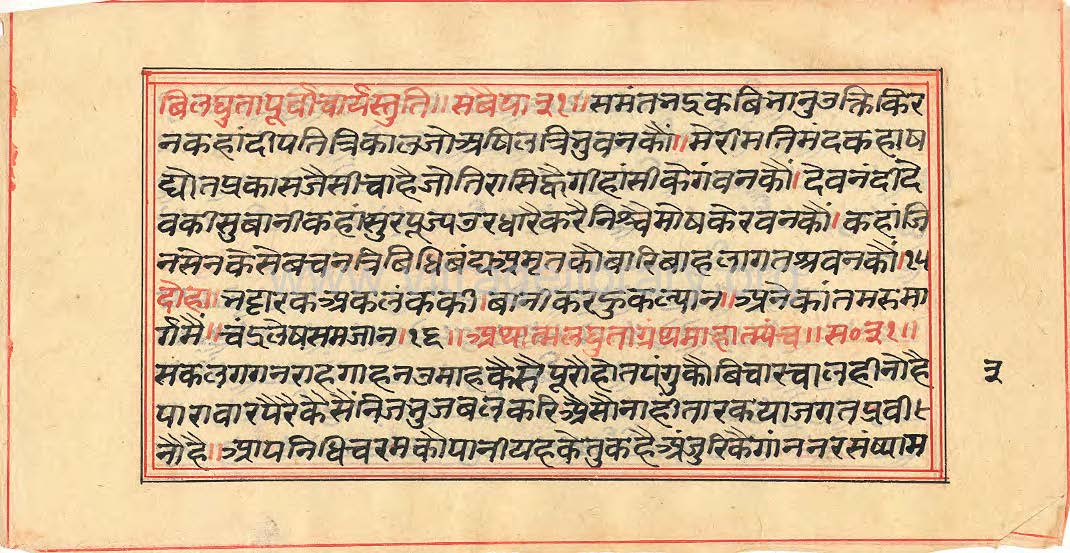 बिलघुतापूर्वाचार्यस्तुति ॥ सवैया ३१॥ समंतभद्र कबिभानुउक्तिकिर
नकहांदीपतित्रिकालजोअषिलत्रिभुवनकौं॥ मेरीमतिमंदकहाष
द्योतप्रकासजैसीचाहैजौतिरासिह्वैगीहांसीकेगंवनकौं। देवनंदीदे
वकीसुबानीकहांसुरपूज्यउरधारैकरैनिश्चैमोषकेरवनकौं। कहांजि
नसेनकेसेबचनत्रिबिधिबंद्यअमृतकौबारिबाहलागतश्रवनकौं॥१५
दोहा॥ भट्टारकअकलंककी। बानीकरहुकल्यान॥ अनेकांतमरुमा
र्गमैं॥ चंद्रलेषसमजान १६॥ अथात्मलघुताग्रंथमाहात्म्यंच॥ स० ३१॥
सकलगगनराहगाहनउमाहकैसैंपूरौहोतपंगुकौबिचास्चालहीनोहै
पारावारपैरैकैसैंनिजभुजबलकरिअैसौनाहीतारकयाजगतप्रवी
नौहै॥ आपनिधिचरमकौपानीयहकेतुकहैअंजुरिकैगांननरसंष्याम
३